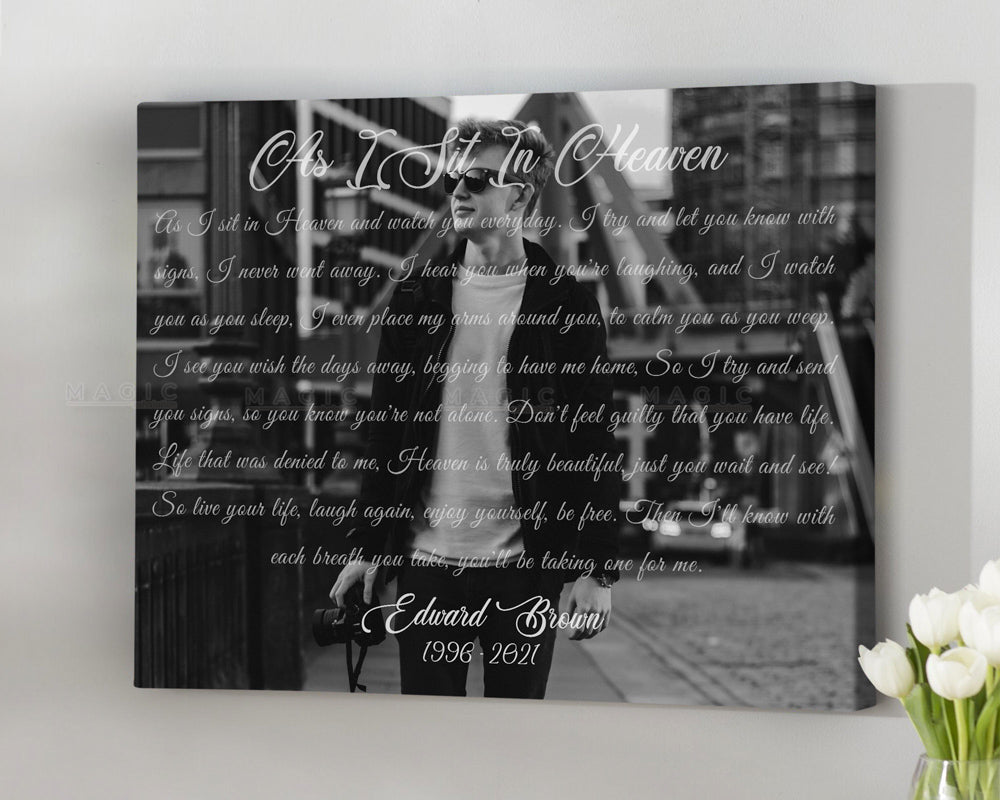 As I Sit In Heaven
As I sit in Heaven and watch you everyday. I try and let you know with
signs, I never went away. I hear you when you're laughing, and I watch
you as you sleep, I even place my arms around you, to calm you as you weep.
I see you wish the days away, begging to have me home, So I try and send
MAGIC MAGIC MAGIC MAGIC
you signs, so you know you're not alone. Don't feel guilty that you have life.
Life that was denied to me, Heaven is truly beautiful, just you wait and see!
So live your life, laugh again, enjoy yourself, be free. Then I'll know with
each breath you take, you'll be taking one for me.
Edward Brown
1996 - 2021